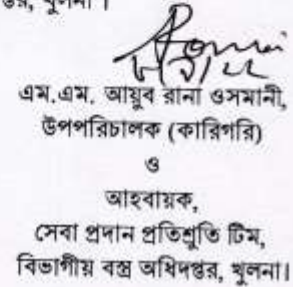 খুলনা।
এম.এম. আয়ুব রানা ওসমানী,
উপপরিচালক (কারিগরি)
ও
আহবায়ক,
সেবা প্রদান প্রতিশ্রুতি টিম,
বিভাগীয় বস্ত্র অধিদপ্তর, খুলনা।